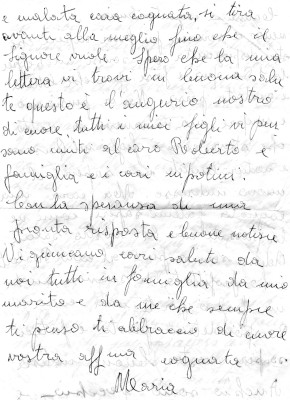 e malata cara cognata, si tira
avanti alla meglio fino che il
Signore vuole. Spero che la mia
lettera vi trovi in buona salu
te questo è l'augurio nostro
di cuore, tutti i miei figli vi pen
sano uniti al caro Roberto e
famiglia e i cari nipotini.
Con la speranza di una
pronta risposta e buone notizie
Vi giuncano cari saluti da
noi tutti in famiglia da mio
marito e da me che sempre
ti penso ti abbraccio di cuore
vostra aff ma cognata
Maria